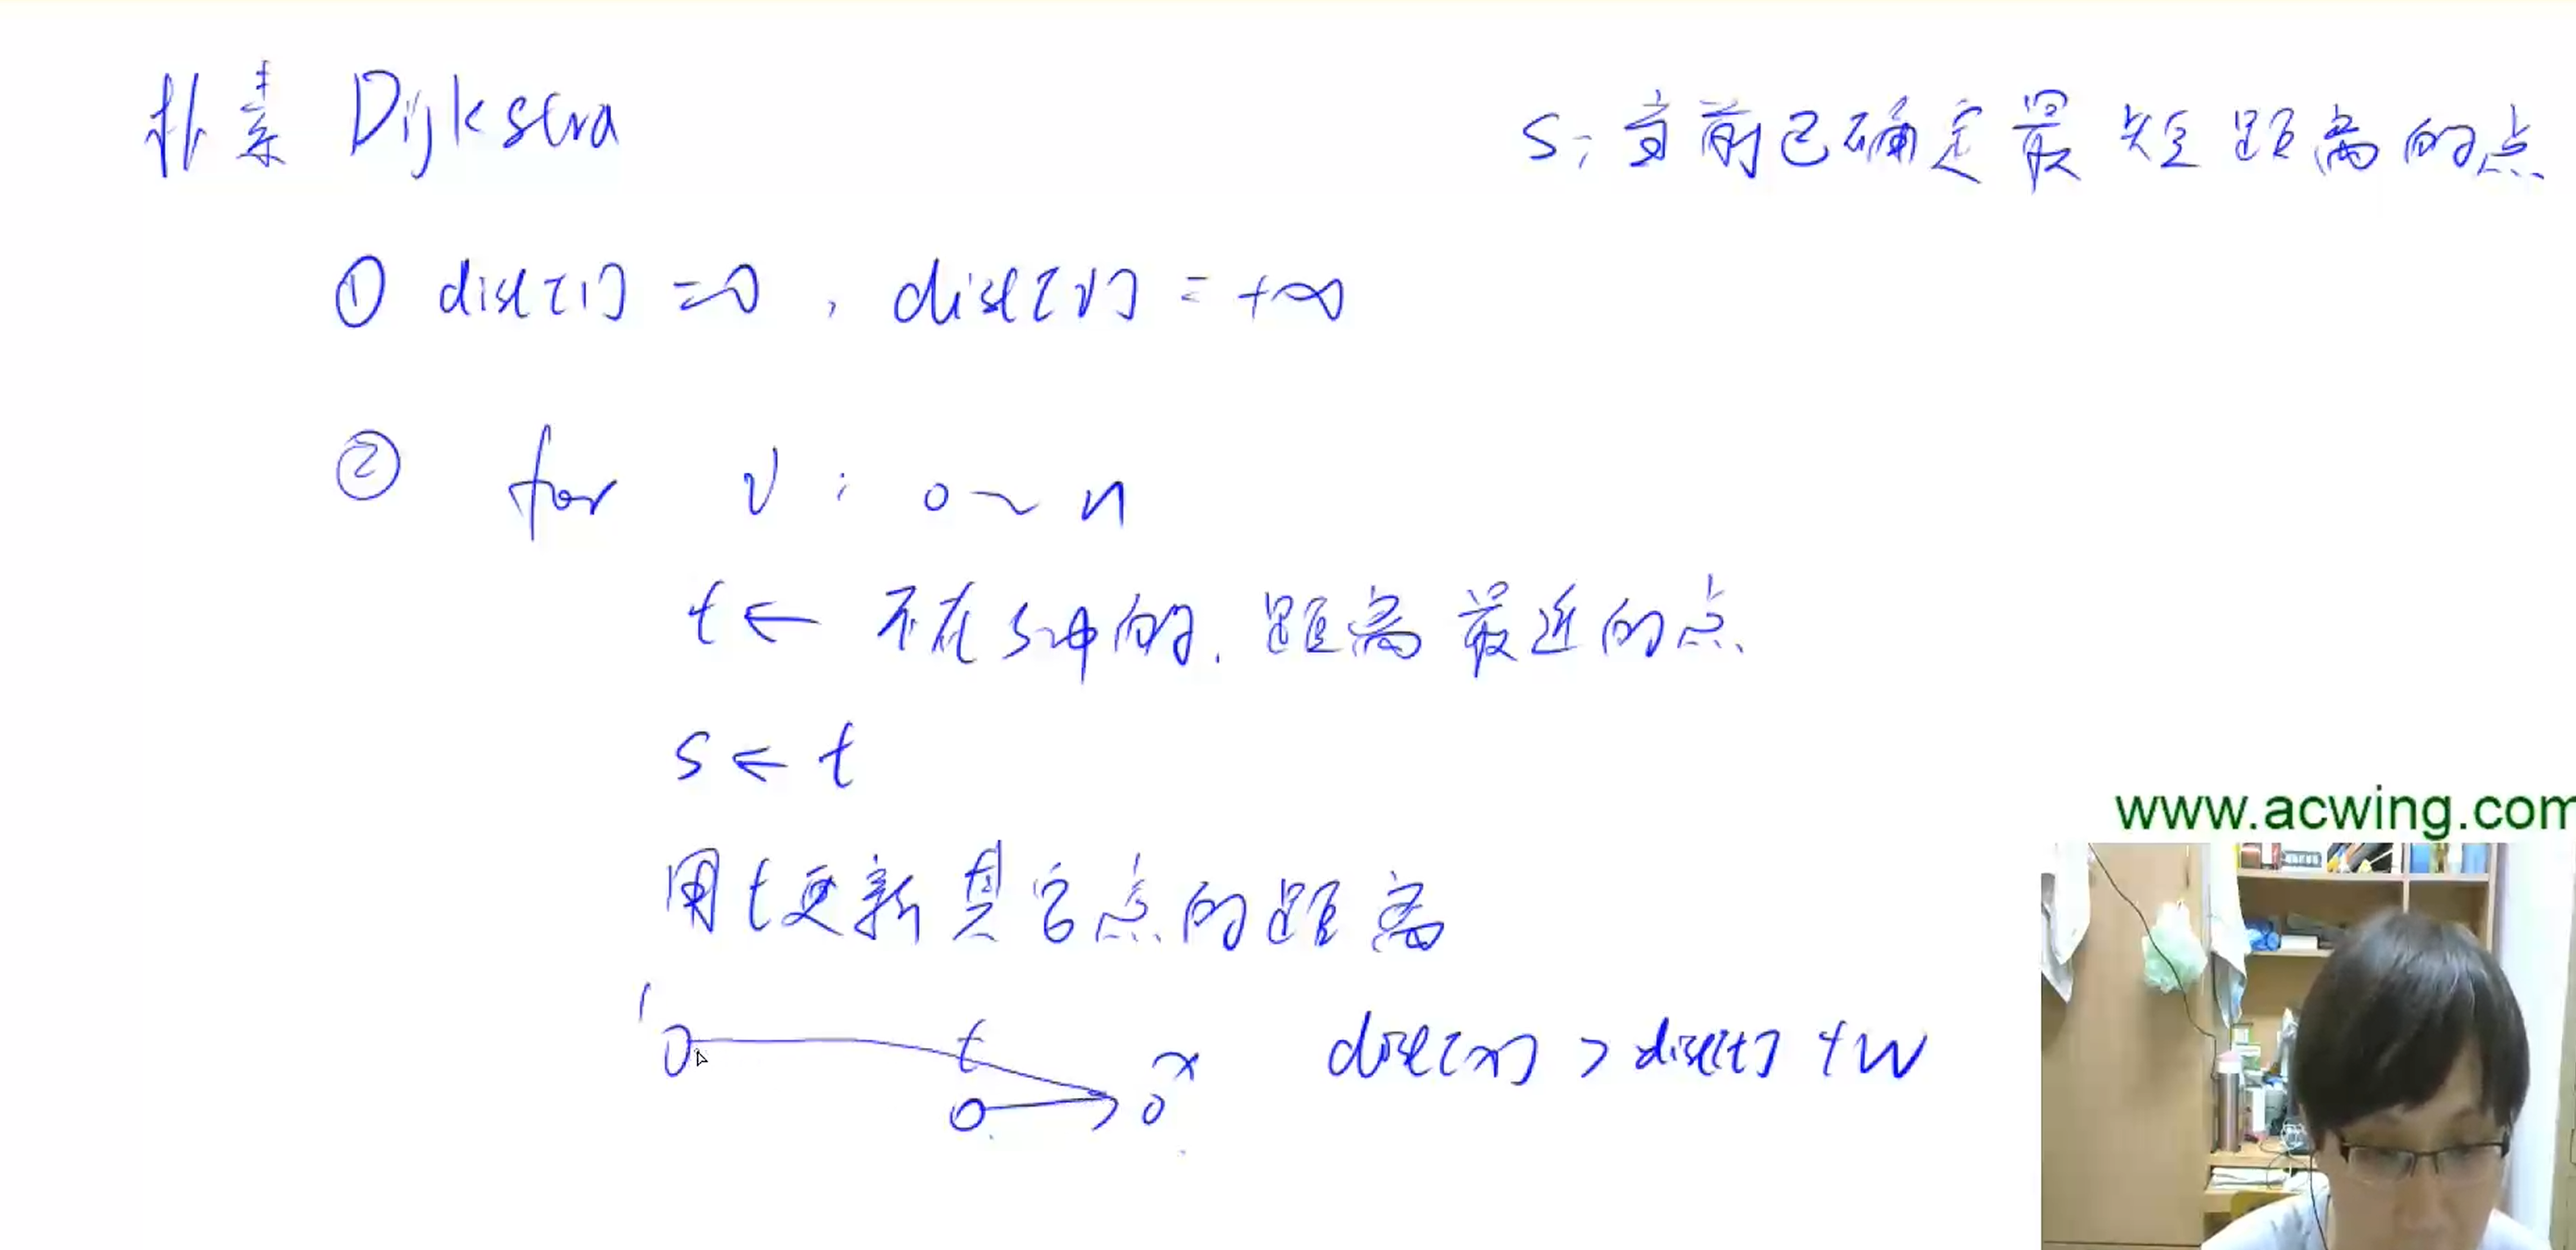 朴素 Dijkstra
S: 当前已确定最短距离的点
① dist[1] = 0, dist[i] = +∞
② for i : 0 ~ n
t ← 不在S中的, 距离最近的点
s ← t
用t更新其它点的距离
1 t x
dist[x] > dist[t] + w
www.acwing.com